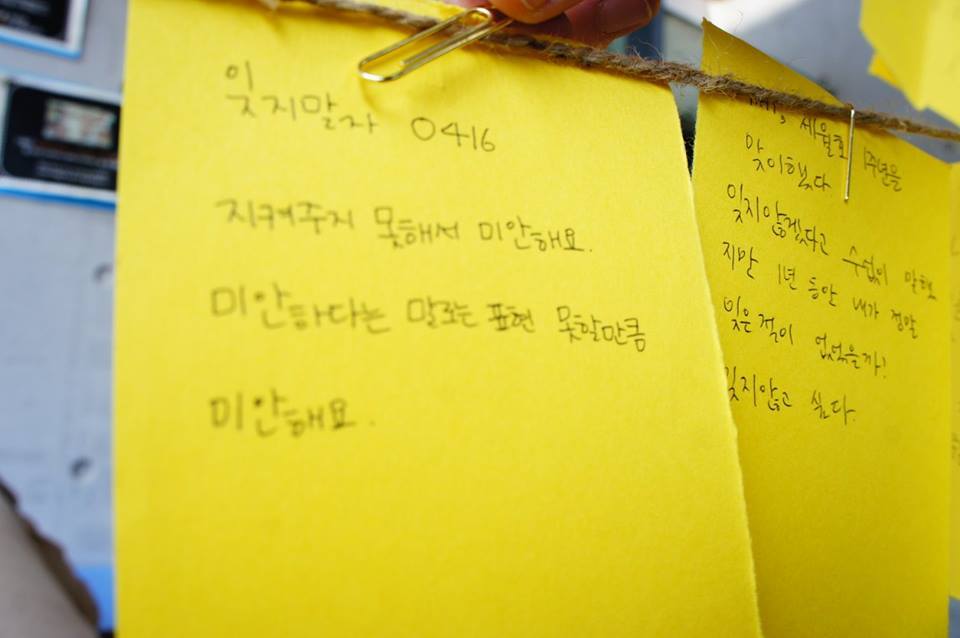 잊지말자 0416
지켜주지 못해서 미안해요.
미안하다는 말로는 표현 못할만큼
미안해요.
세월호 1주년을
맞이했다
잊지않겠다고 수없이 말했
지만 1년 동안 내가 정말
잊은적이 없었을까!
잊지않고 싶다.